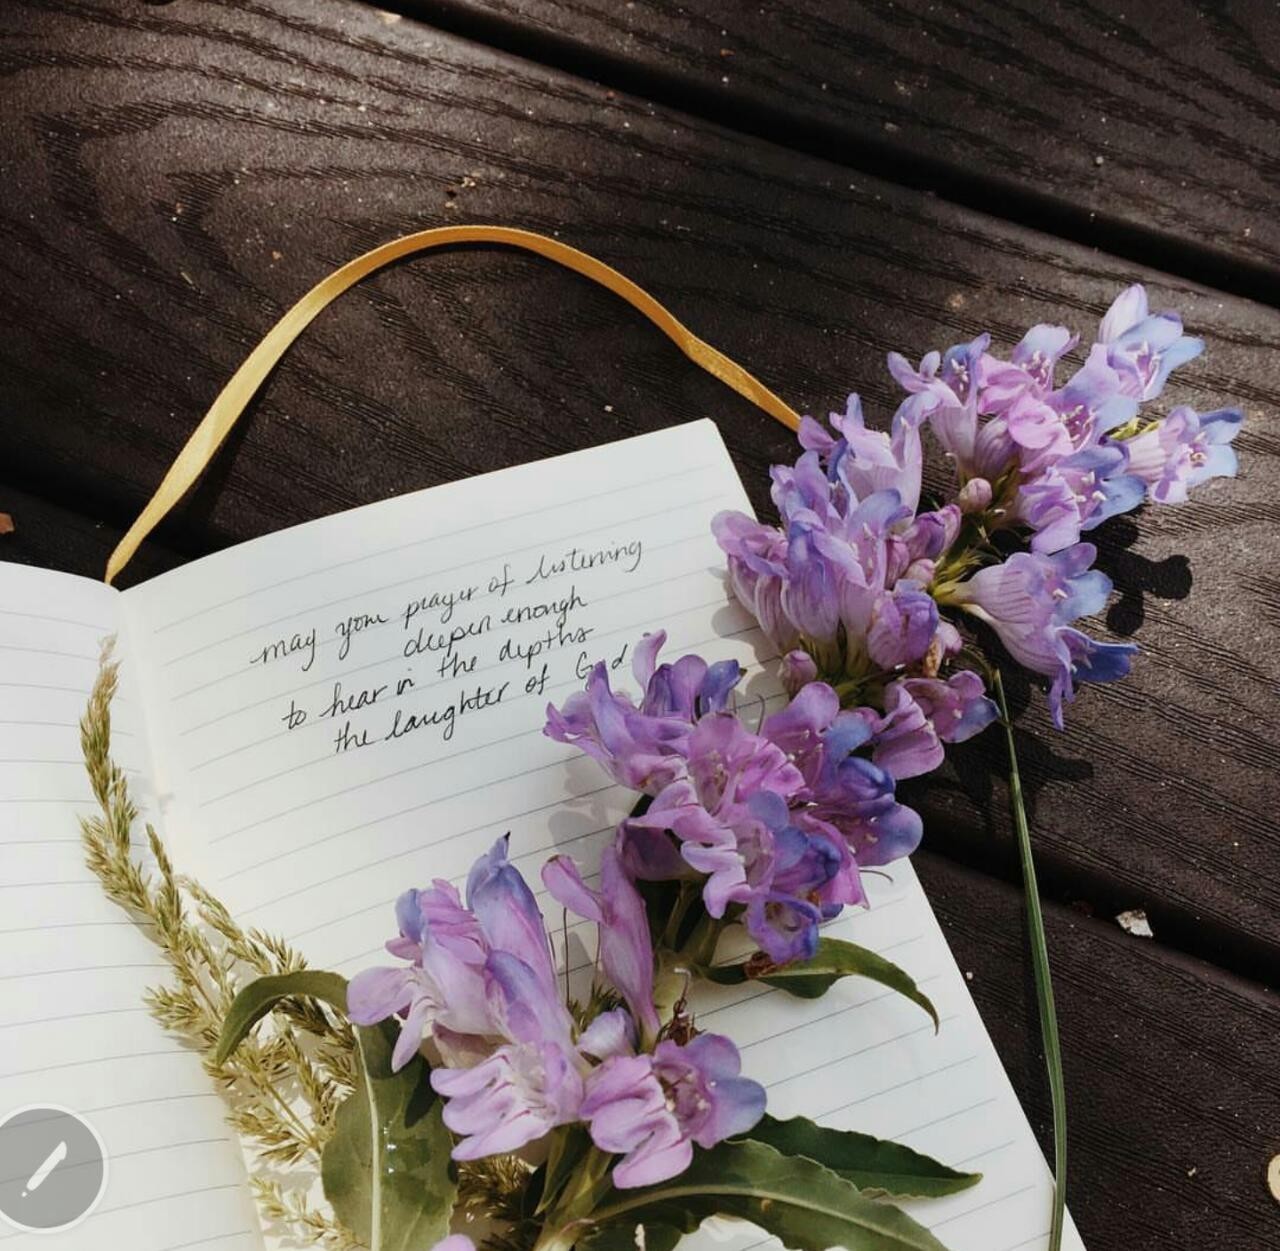 may your prayer of listening
deepen enough
to hear in the depths
the laughter of God